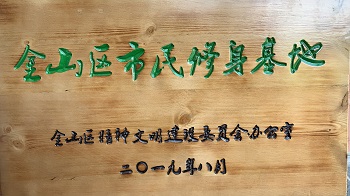 金山区市民修身基地
金山区精神文明建设委员会办公室
二〇一九年八月